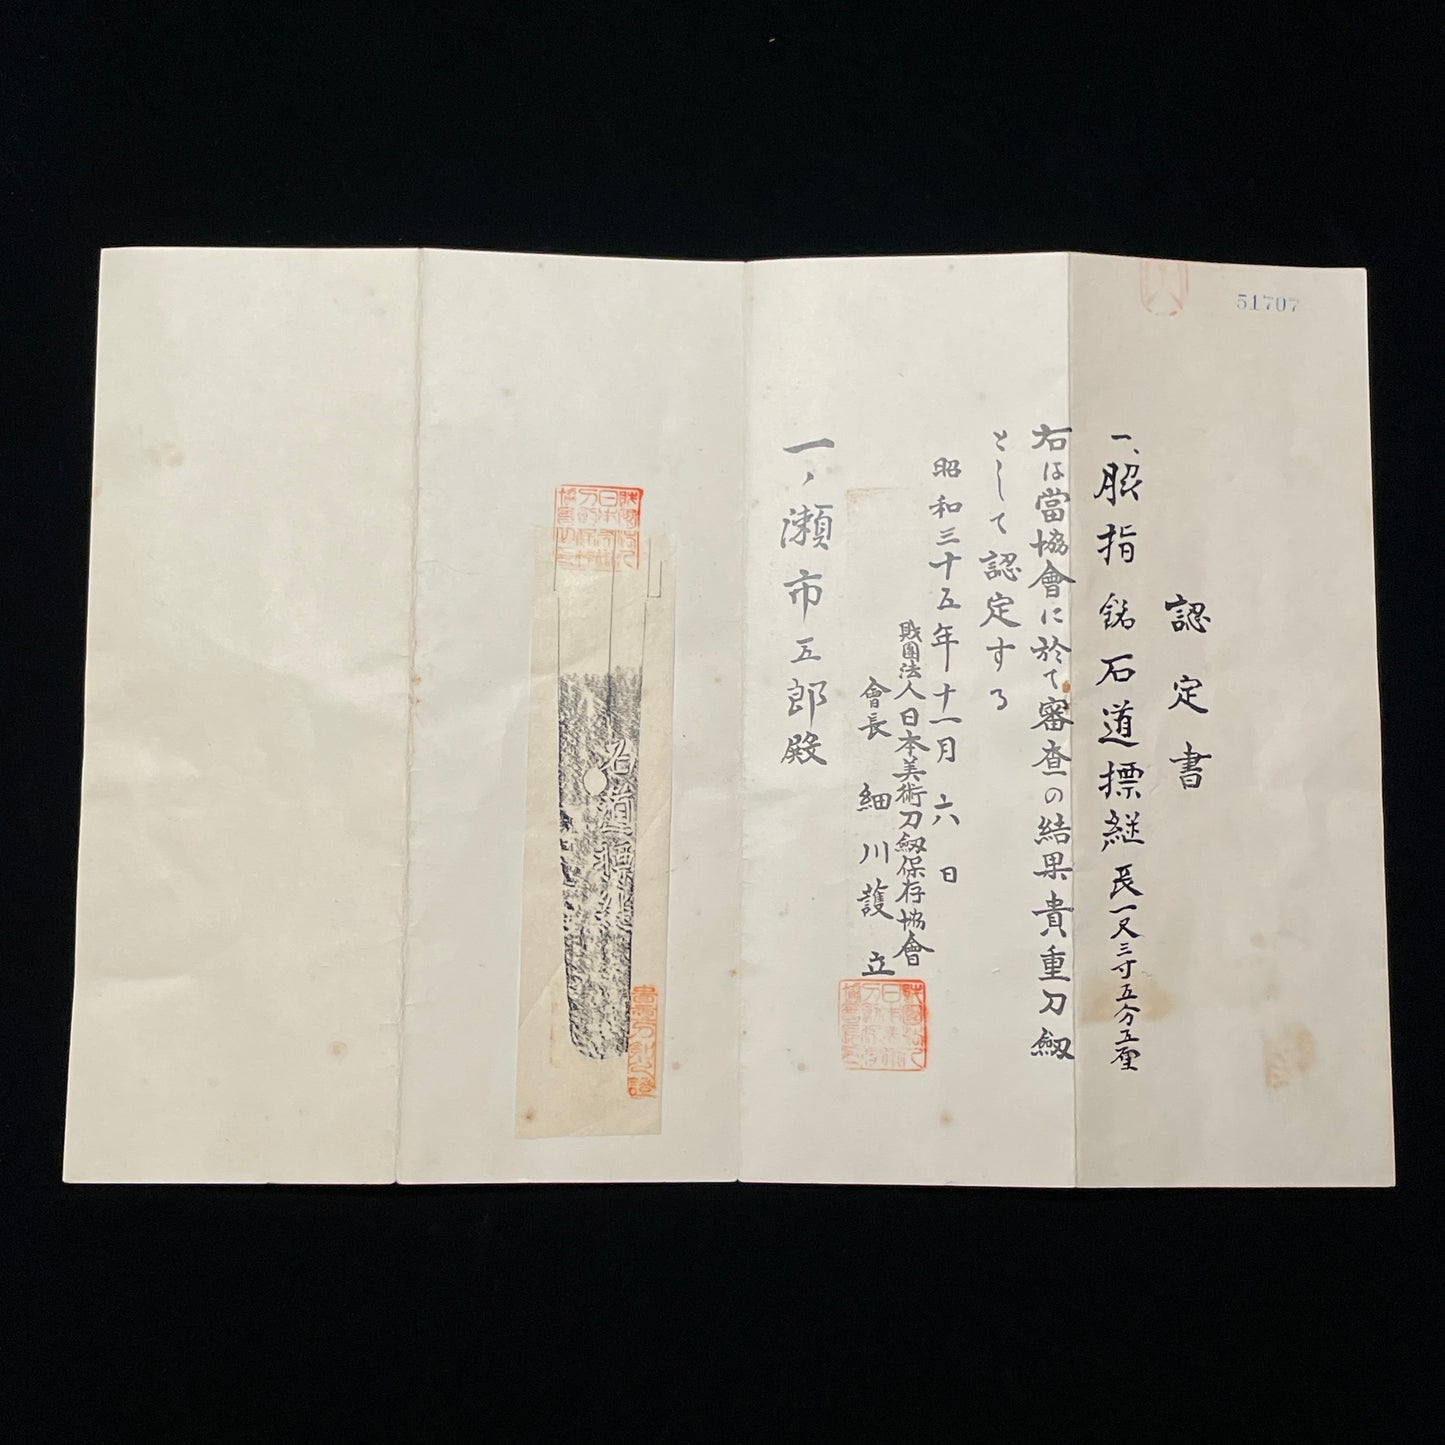 51707
認定書
一、脇指 銘 石道標継 長一尺三寸五分五厘
右は當協會に於て審査の結果貴重刀劔
として認定する
昭和三十五年十一月六日
財團法人日本美術刀劔保存協會
會長 細川護立
一ノ瀬市五郎殿
石道標継